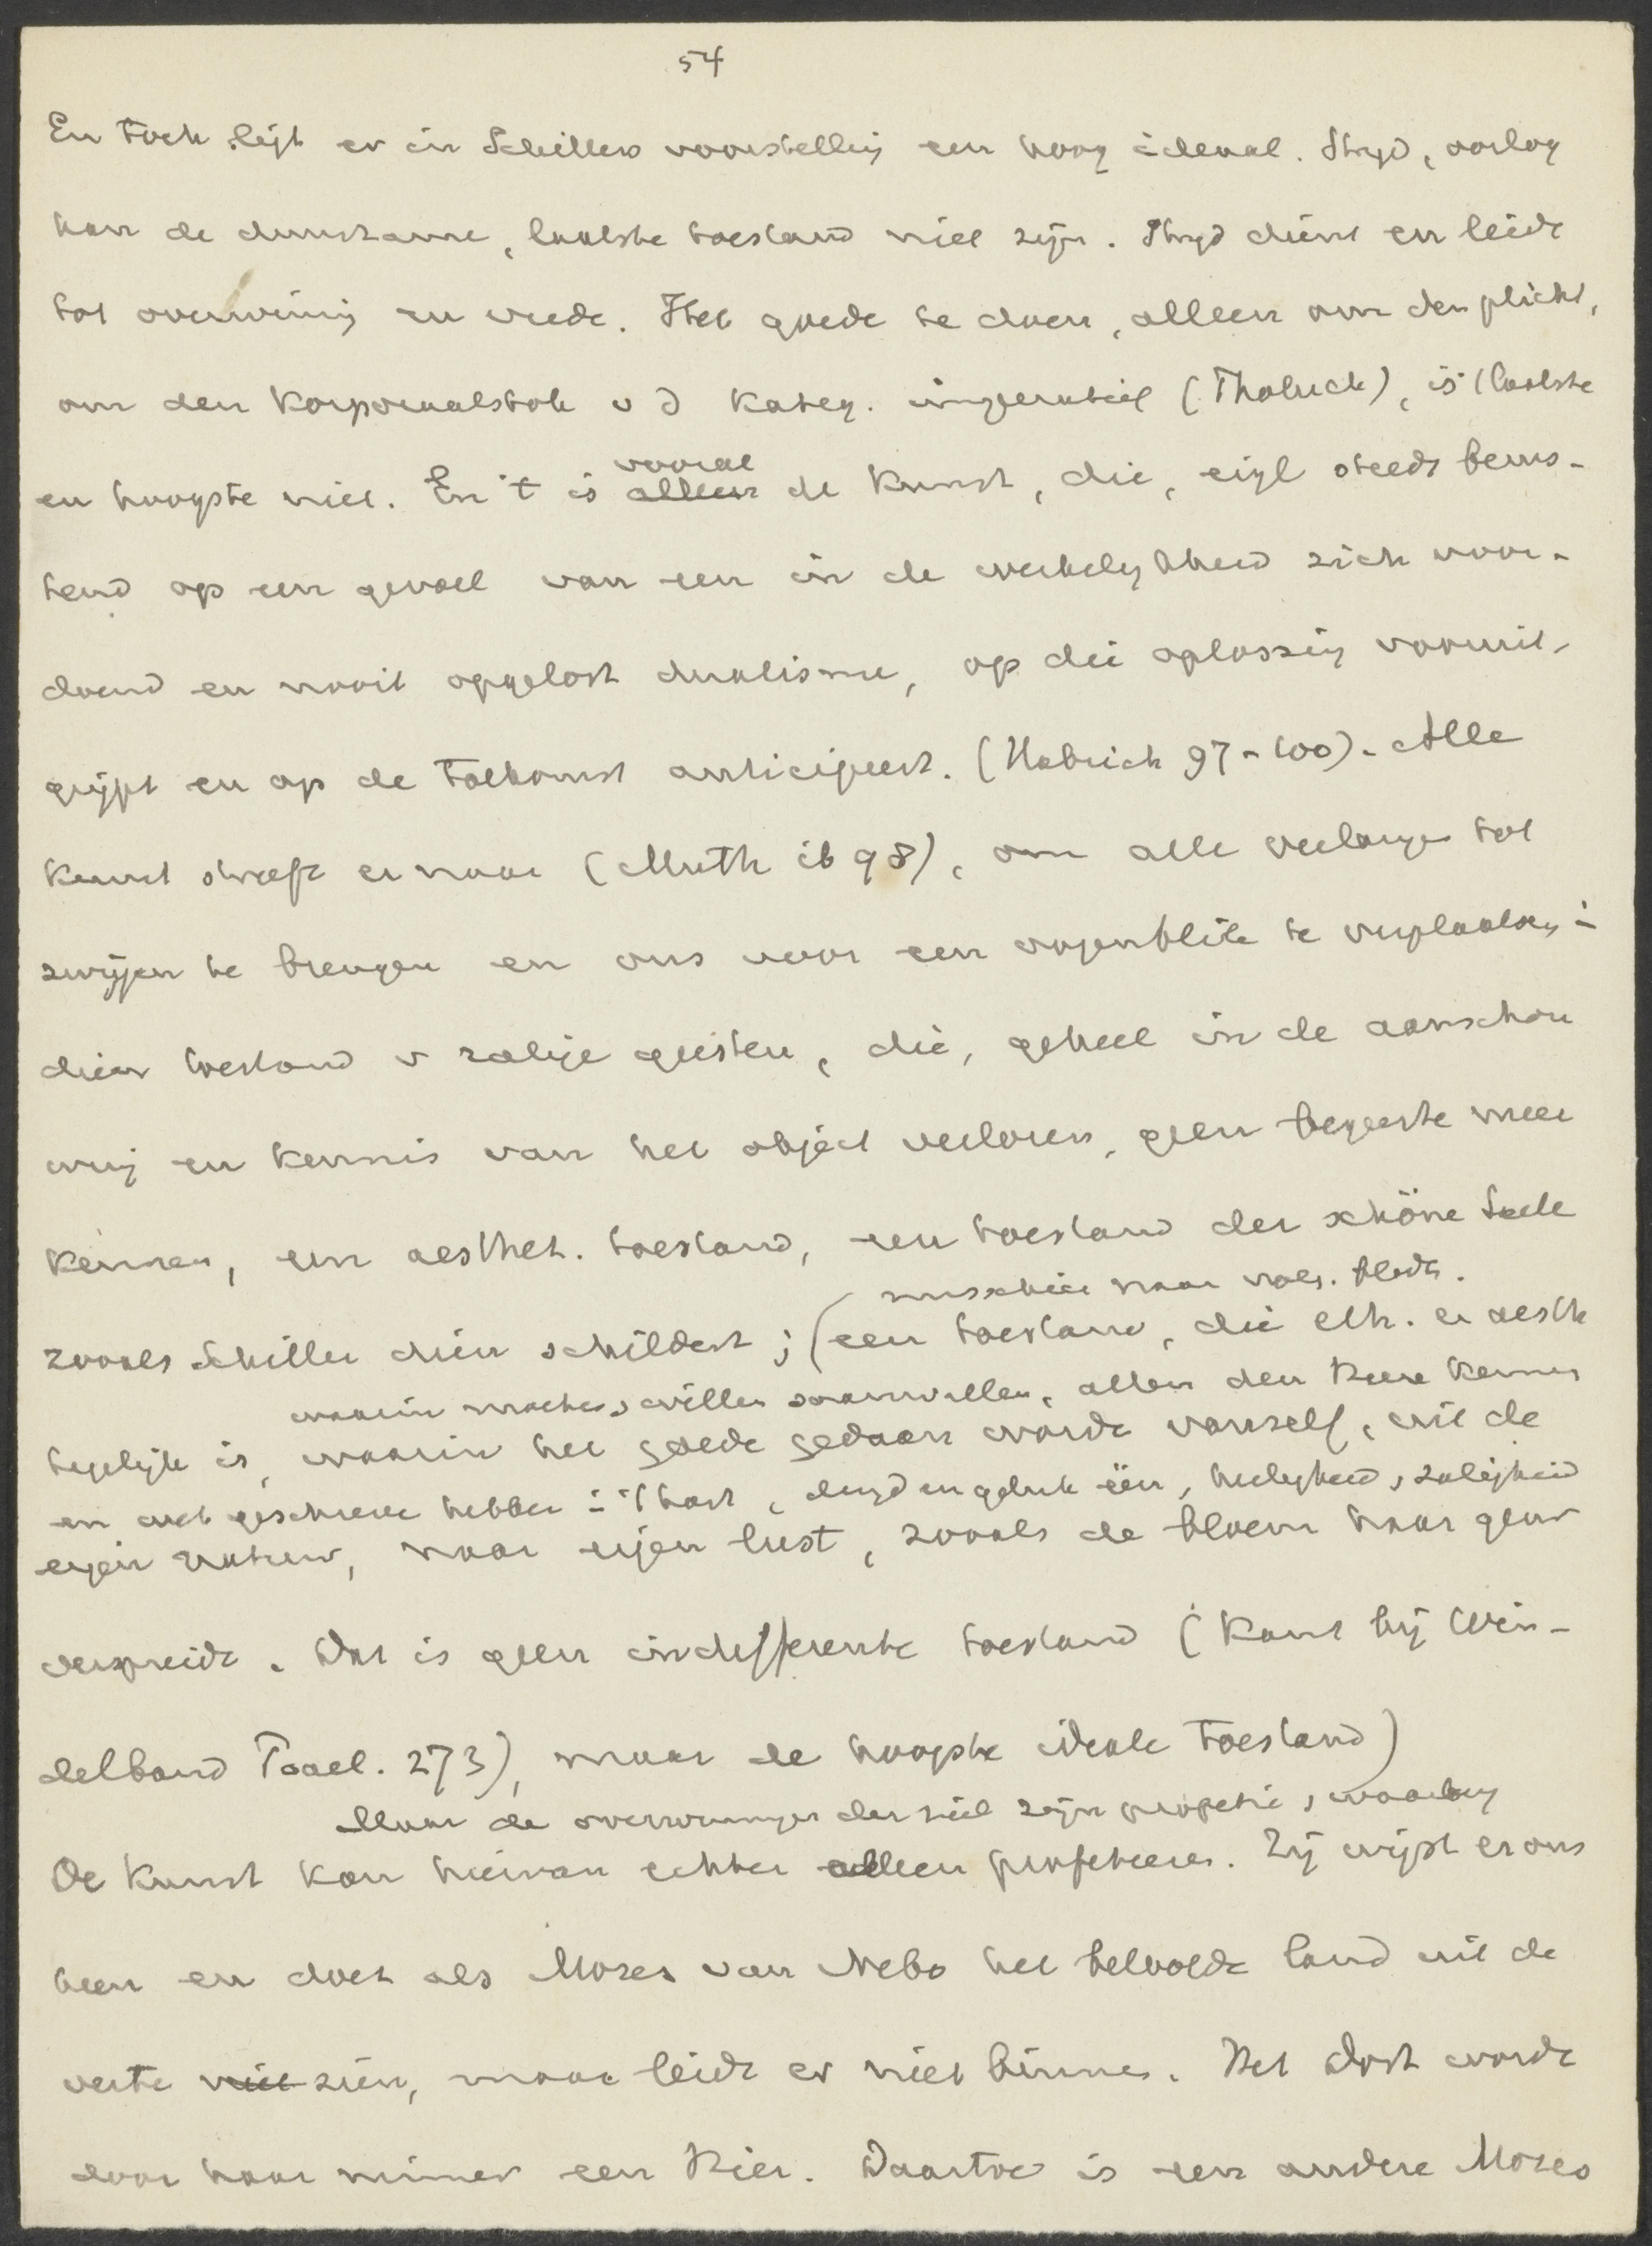 54
En toch ligt er in Schillers voorstelling een hoog ideaal. Stryd, oorlog
kan de duurzame, laatste toestand niet zijn. Stryd dient en leidt
tot overwinning en vrede. Het goede te doen, alleen om den plicht,
om den korporaalstok v d kateg. imperatief (Tholuck), is 't laatste
en hoogste niet. En 't is alleen vooral de kunst, die, eigl steeds berus-
tend op een gevoel van een in de werkelykheid zich voor-
doend en nooit opgelost dualisme, op die oplossing vooruit-
grijpt en op de toekomst anticipeert. (Habrich 97-100). Alle
kunst streeft er naar (Muth ib 98), om alle verlangen tot
zwijgen te brengen en ons voor een oogenblik te verplaatsen i
dien toestand v zalige geesten, die, geheel in de aanschou
wing en kennis van het object verloren, geen begeerte meer
kennen, een aesthet. toestand, een toestand der schöne Seele
misschien naar volg. bladz.
zooals Schiller dien schildert; (een toestand, die eth. en aesth
waarin moeten, willen samenvallen, allen den Heere kennen
tegelijk is, waarin het goede gedaan wordt vanzelf, uit de
en wet geschreven hebben i 't hart, deugd en geluk één, heiligheid, zaligheid
eigen natuur, naar eigen lust, zooals de bloem haar geur
verspreidt. Dat is geen indifferente toestand (Kant bij Win-
delband Prael. 273), maar de hoogste ideale toestand)
Maar de overwinningen der ziel zijn profetie, waarbij
De kunst kan hiervan echter alleen profeteeren. Zij wijst er ons
heen en doet als Mozes van Nebo het beloofde land uit de
verte niet zien, maar leidt er niet binnen. Het Dort wordt
door haar nimmer een Hier. Daartoe is een andere Mozes